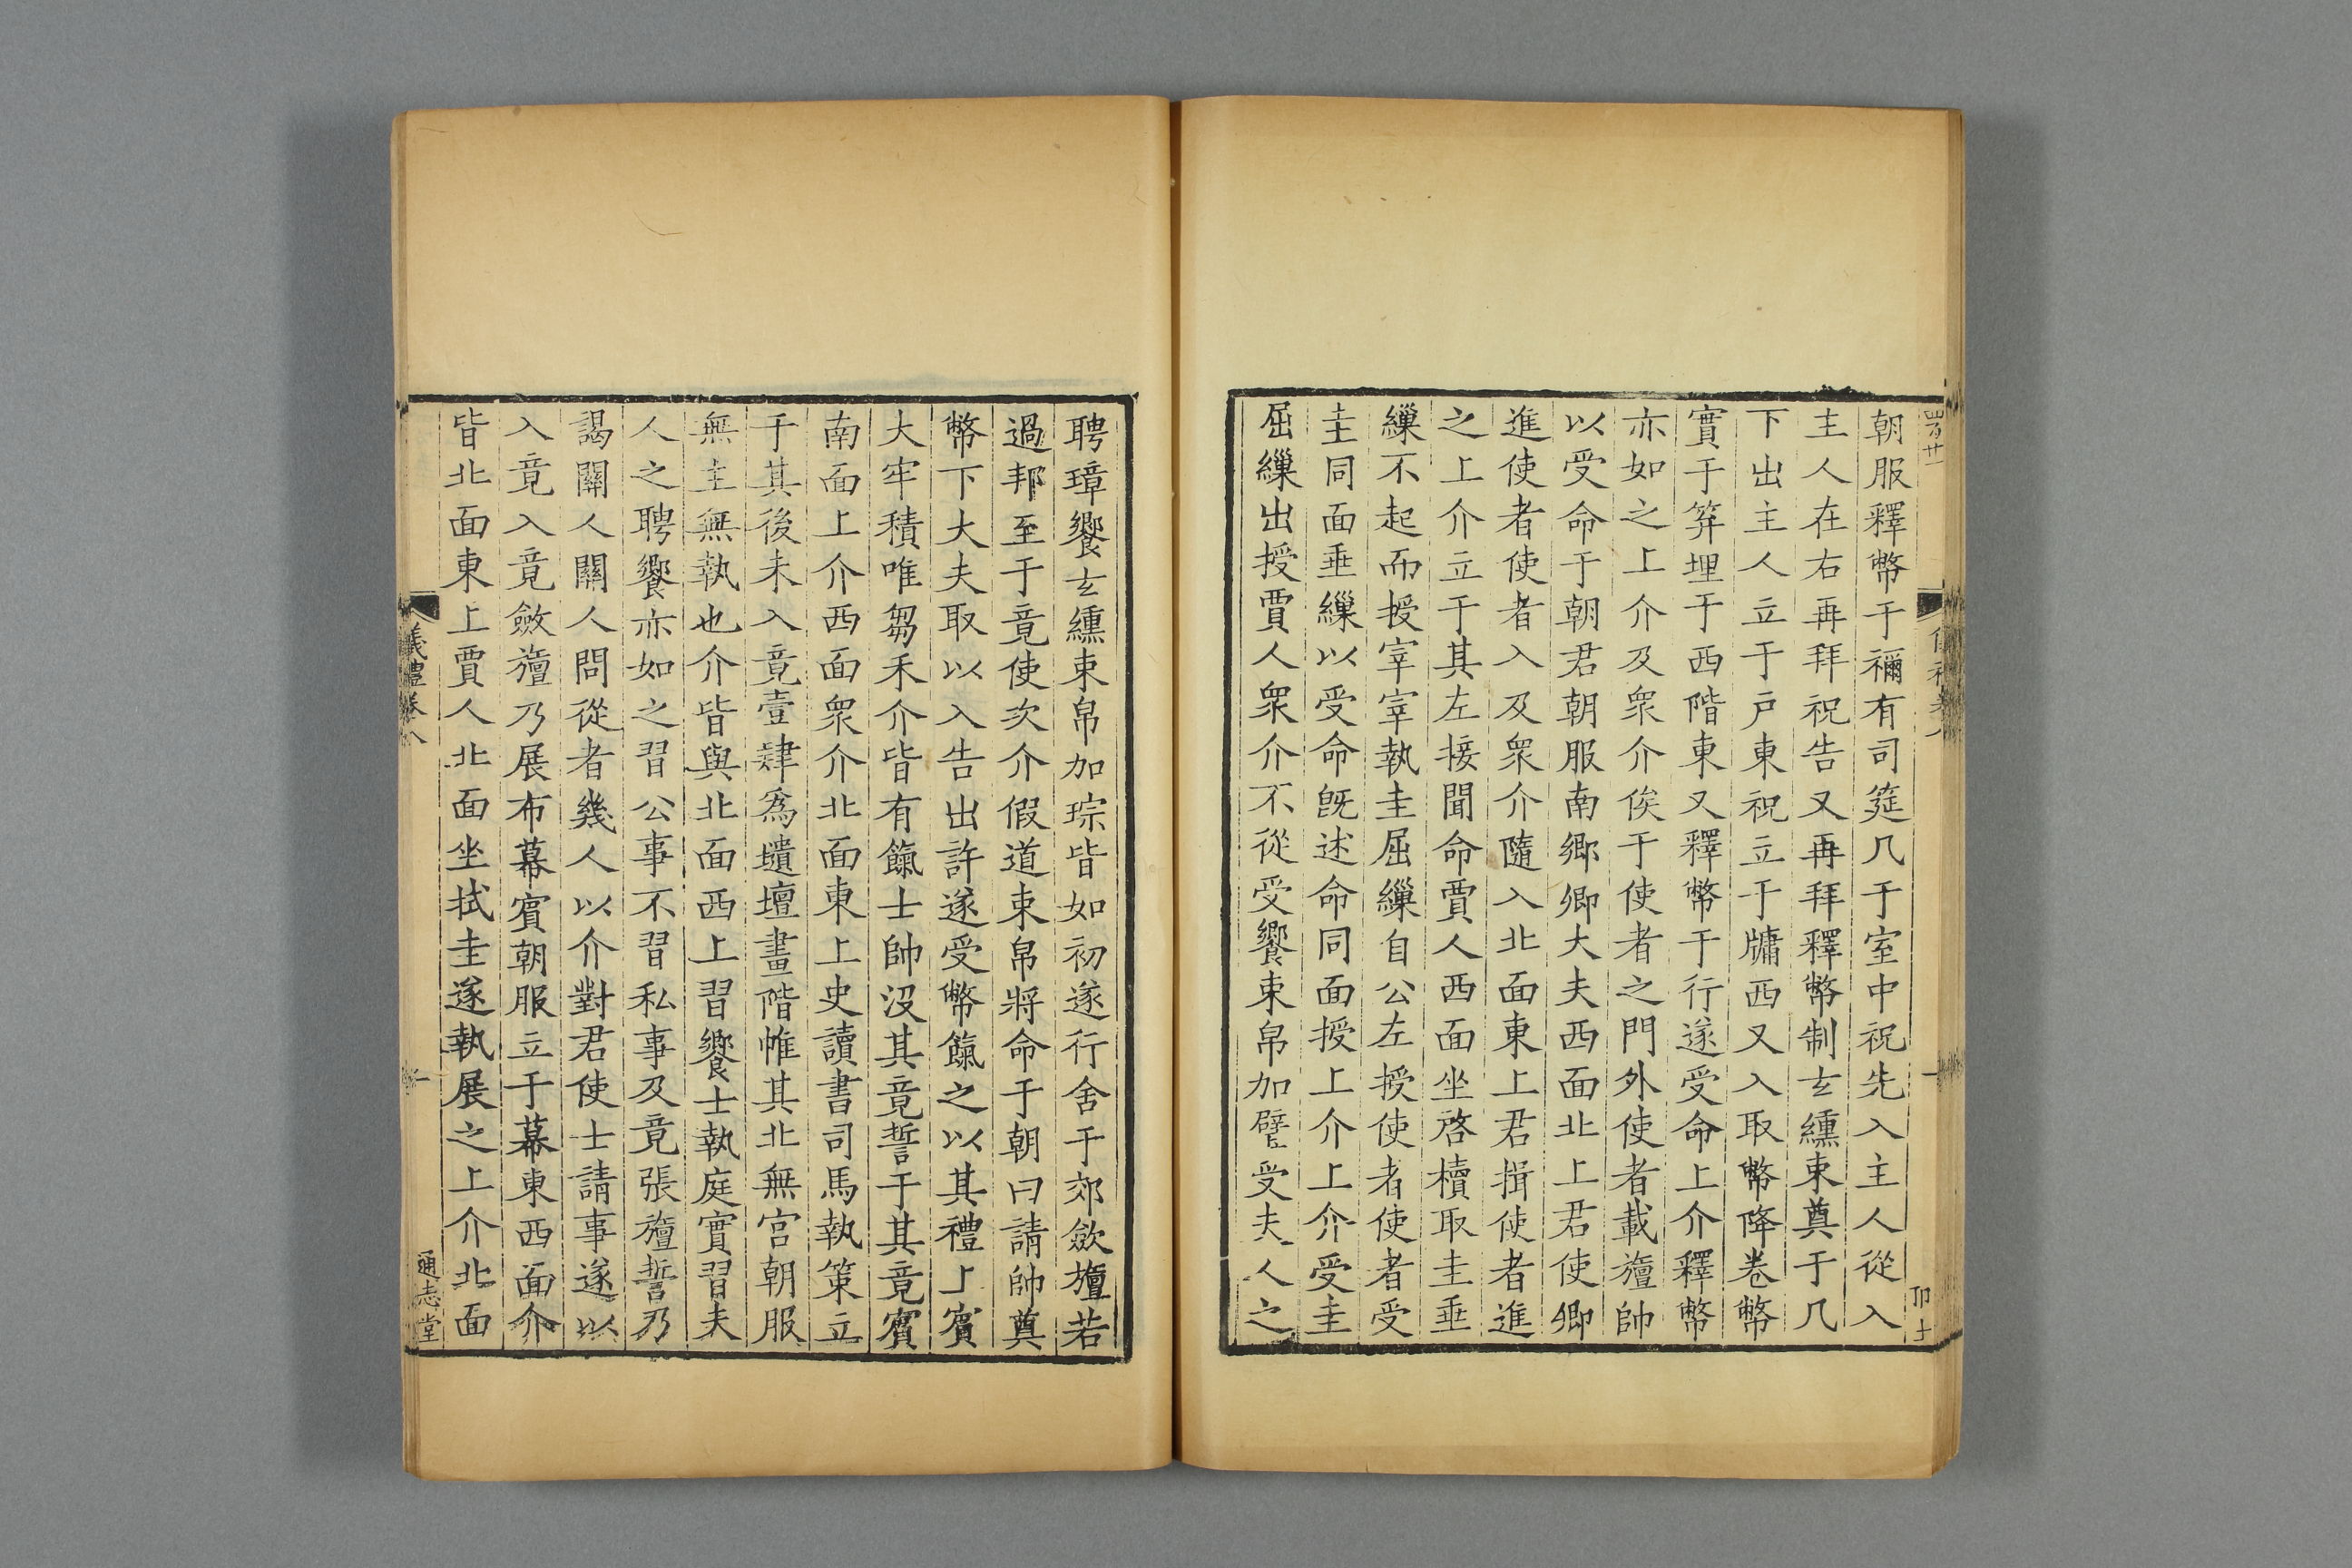 朝服釋幣于禰有司筵几于室中祝先入主人從入
主人在右再拜祝告又再拜釋幣制玄纁束奠于几
下出主人立于戶東祝立于牖西又入取幣降卷幣
實于笲埋于西階東又釋幣于行遂受命上介釋幣
亦如之上介及眾介俟于使者之門外使者載旜帥
以受命于朝君朝服南鄉卿大夫西面北上君使卿
進使者使者入及眾介隨入北面東上君揖使者進
之上介立于其左接聞命賈人西面坐啓櫝取圭垂
繅不起而授宰宰執圭屈繅自公左授使者使者受
圭同面垂繅以受命既述命同面授上介上介受圭
屈繅出授賈人眾介不從受饗束帛加璧受夫人之
聘璋饗玄纁束帛加琮皆如初遂行舍于郊斂旜若
過邦至于竟使次介假道束帛將命于朝曰請帥奠
幣下大夫取以入告出許遂受幣餼之以其禮上賓
大牢積唯芻禾介皆有餼士帥沒其竟誓于其竟賓
南面上介西面眾介北面東上史讀書司馬執策立
于其後未入竟壹肄為壝壇畫階帷其北無宮朝服
無主無執也介皆與北面西上習饗士執庭實習夫
人之聘饗亦如之習公事不習私事及竟張旜誓乃
謁關人關人問從者幾人以介對君使士請事遂以
入竟入竟斂旜乃展布幕賓朝服立于幕東西面介
皆北面東上賈人北面坐拭圭遂執展之上介北面
儀禮卷八
通志堂